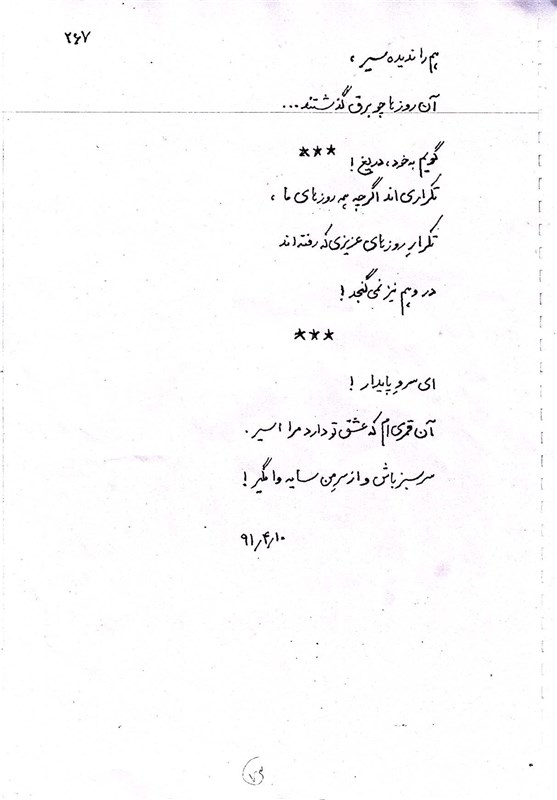 ۲۶۷
هم را ندیده سیر ،
آن روزها چو برق گذشتند...
***
گویم به خود، دریغ !
تکراری اند اگرچه همه روزهای ما ،
تکرارِ روزهای عزیزی که رفته اند
در وهم نیز نمی گنجد !
***
ای سروِ پایدار !
آن قمری ام که عشق تو دارد مرا اسیر .
سرسبز باش و از سرِ من سایه وامگیر !
۹۱٫۴٫۱۰